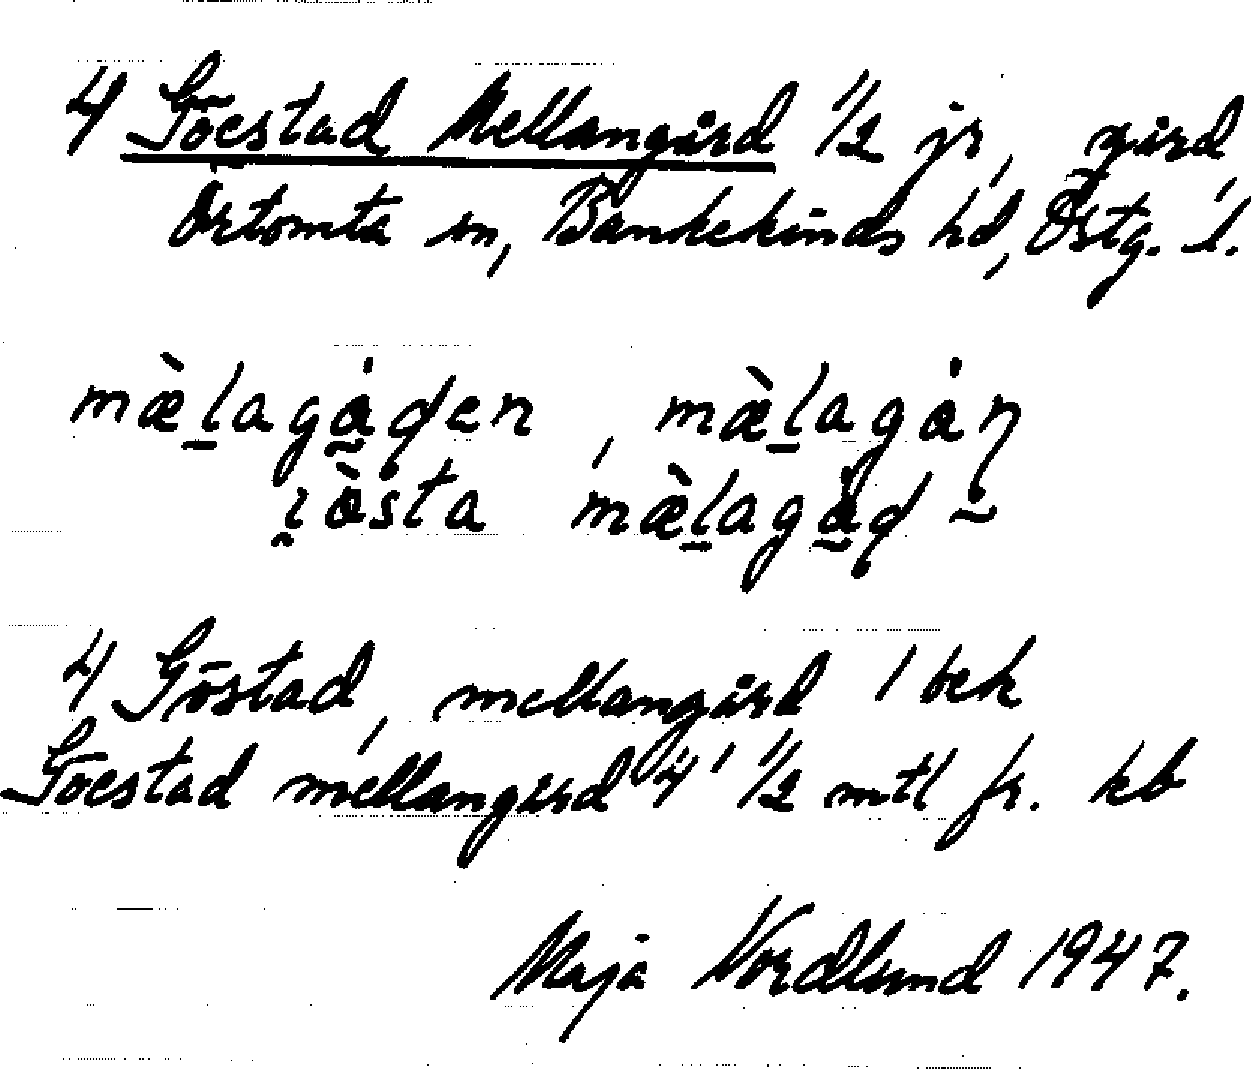 4 Göestad Mellangård 1/2 jr, gård
Örtomta sn, Bankekinds hd, Östg. l.
mæ̀lagåden, mæ̀lagån
i̯òsta mæ̀lagåd
4 Göstad, mellangård 1 bek
Göestad mellangård 4' 1/2 mtl fr. kb
Maja Nordlund 1947.